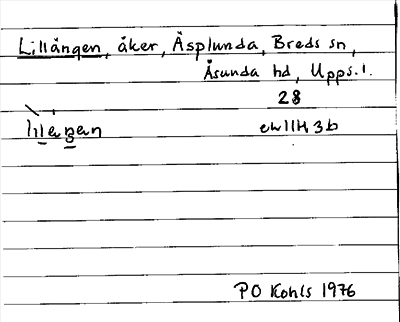 Lillängen, åker, Äsplunda, Breds sn,
Åsunda hd, Upps.l.
28
ek 11H 3b
PO Kohls 1976